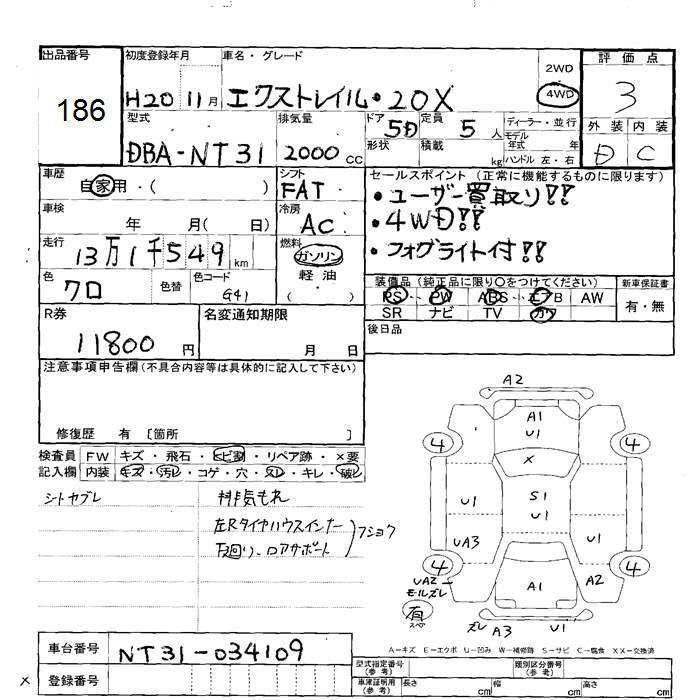 出品番号
186
初度登録年月
H20 11月
車名・グレード
エクストレイル・20X
2WD
4WD
評価点
3
外装 内装
D C
型式
DBA-NT31
排気量
2000cc
ドア
5D
定員
5人
ディーラー・並行
モデル
年式 年
形状
積載 kg
ハンドル 左・右
車歴
自家用・( )
シフト
FAT
セールスポイント(正常に機能するものに限ります)
・ユーザー買取り!!
・4WD!!
・フォグライト付!!
車検
年 月( 日)
冷房
AC
走行
13万1千549km
燃料
ガソリン
軽油
( )
色
クロ
色替
色コード
G41
装備品(純正品に限り○をつけてください)
PS PW ABS エアB AW
SR ナビ TV カワ
新車保証書
有・無
R券
11800円
名変通知期限
月 日
後日品
注意事項申告欄(不具合内容等は具体的に記入して下さい)
修復歴 有 〔箇所 〕
検査員 FW キズ・飛石・ヒビ割・リペア跡・×要
記入欄 内装 キズ・汚レ・コゲ・穴・スレ・キレ・破レ
シトヤブレ
排気もれ
左Rタイヤハウスインナー
下回り、ロアサポート
フショク
A2
A1
U1
4
4
X
U1
S1
U1
UA3
U1
4
4
UA2
モールズレ
A1
A2
有
スペ
ズレ A3
U1
車台番号
NT31-034109
A=キズ E=エクボ U=凹み W=補修跡 S=サビ C=腐食 XX=交換済
× 登録番号
型式指定番号
(参考)
類別区分番号
(参考)
車庫証明用
(参考)
長さ cm
幅 cm
高さ cm